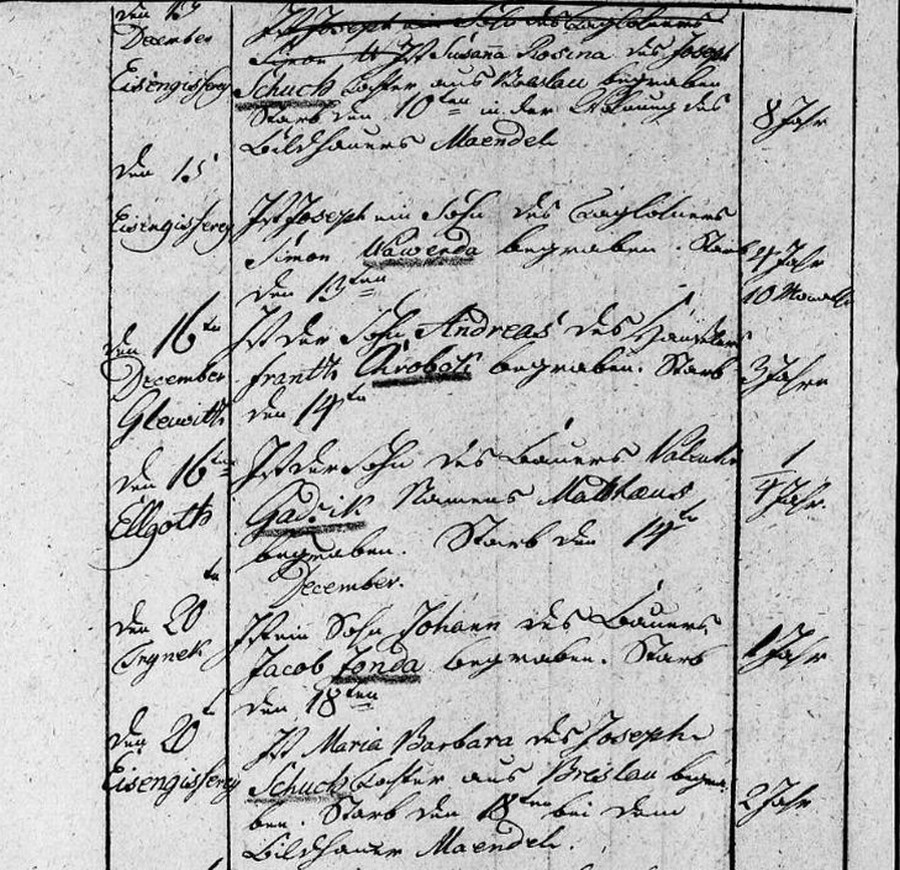 den 13
December
Eisengisserey
Ist Joseph ein Sohn des Taglöhners
Simon Ist Susanna Rosina des Joseph
Schuch Tochter aus Breslau begraben
Starb den 10ten in der Wohnung des
Bildhauers Maendel.
8 Jahr
den 15
Eisengisserey
Ist Joseph ein Sohn des Taglöhners
Simon Wawerda begraben. Starb
den 13ten
Jahr
10 Monath
den 16tn
December
Gleiwitz
Ist der Sohn Andreas des Häuslers
Frantz Chrobok begraben. Starb
den 14tn
3 Jahre
den 16ten
Ellgoth
Ist der Sohn des Bauers Valentin
Gadzik Namens Mathaeus
begraben. Starb den 14tn
December.
1/4 Jahr.
den 20tn
Trynek
Ist ein Sohn Johann des Bauers
Jacob Jonda begraben. Starb
den 18ten
1 Jahr
den 20t
Eisengisserey
Ist Maria Barbara des Joseph
Schuch Tochter aus Breslau begra-
ben. Starb den 18ten bei dem
Bildhauer Maendel.
2 Jahr